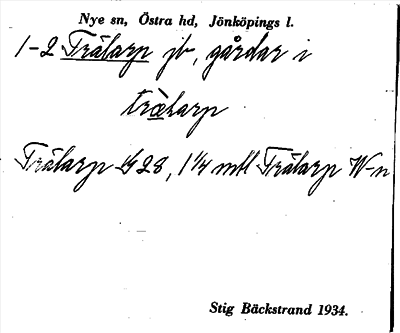 Nye sn, Östra hd, Jönköpings l.
1-2 Trälarp jb, gårdar i
trälarp
Trälarp G 28, 1 1/4 mtl Trälarp W-n
Stig Bäckstrand 1934.